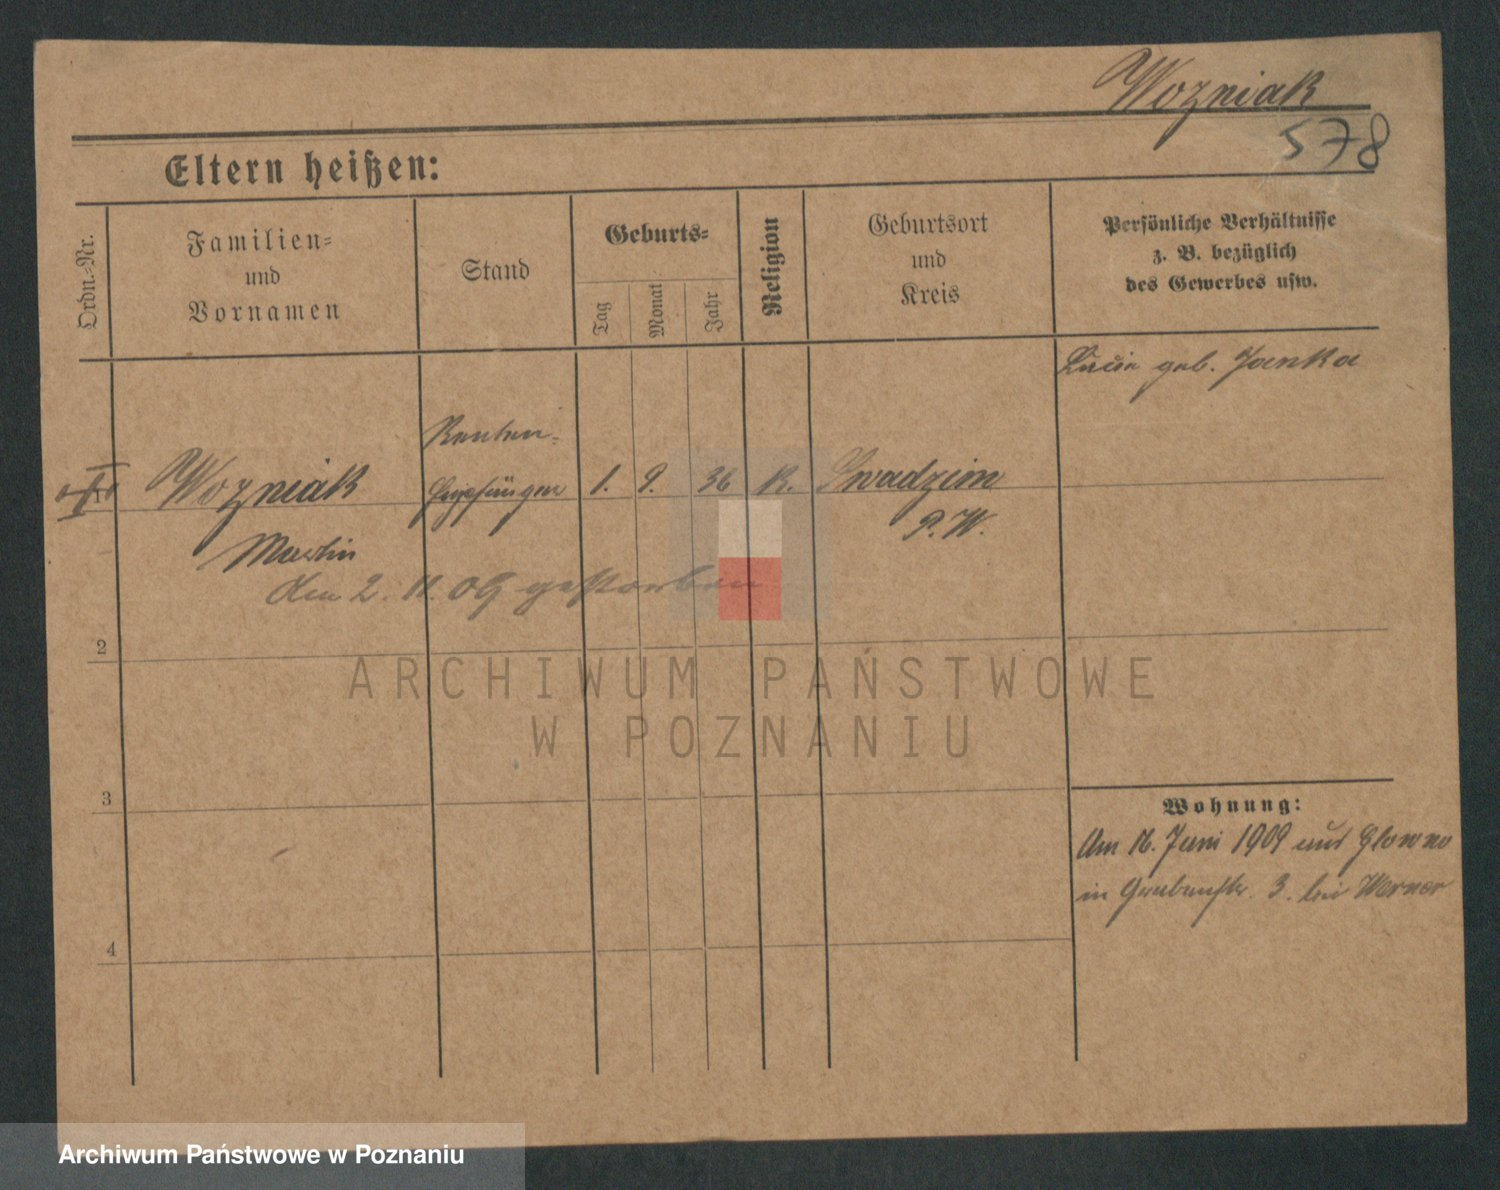 Wozniak
578
Eltern heißen:
Ordn.-Nr.
Familien-
und
Vornamen
Stand
Geburts-
Tag
Monat
Jahr
Religion
Geburtsort
und
Kreis
Persönliche Verhältnisse
z. B. bezüglich
des Gewerbes usw.
geb. Janka
Renten-
Wozniak
Empfänger 1. 9. 36 K.
P. W.
Martin
den 2. 11. 09 gestorben
2
ARCHIWUM PAŃSTWOWE
W POZNANIU
3
Wohnung:
Am 16. Juni 1909 aus Glowno
in Grabenstr. 3. bei Werner
4
Archiwum Państwowe w Poznaniu